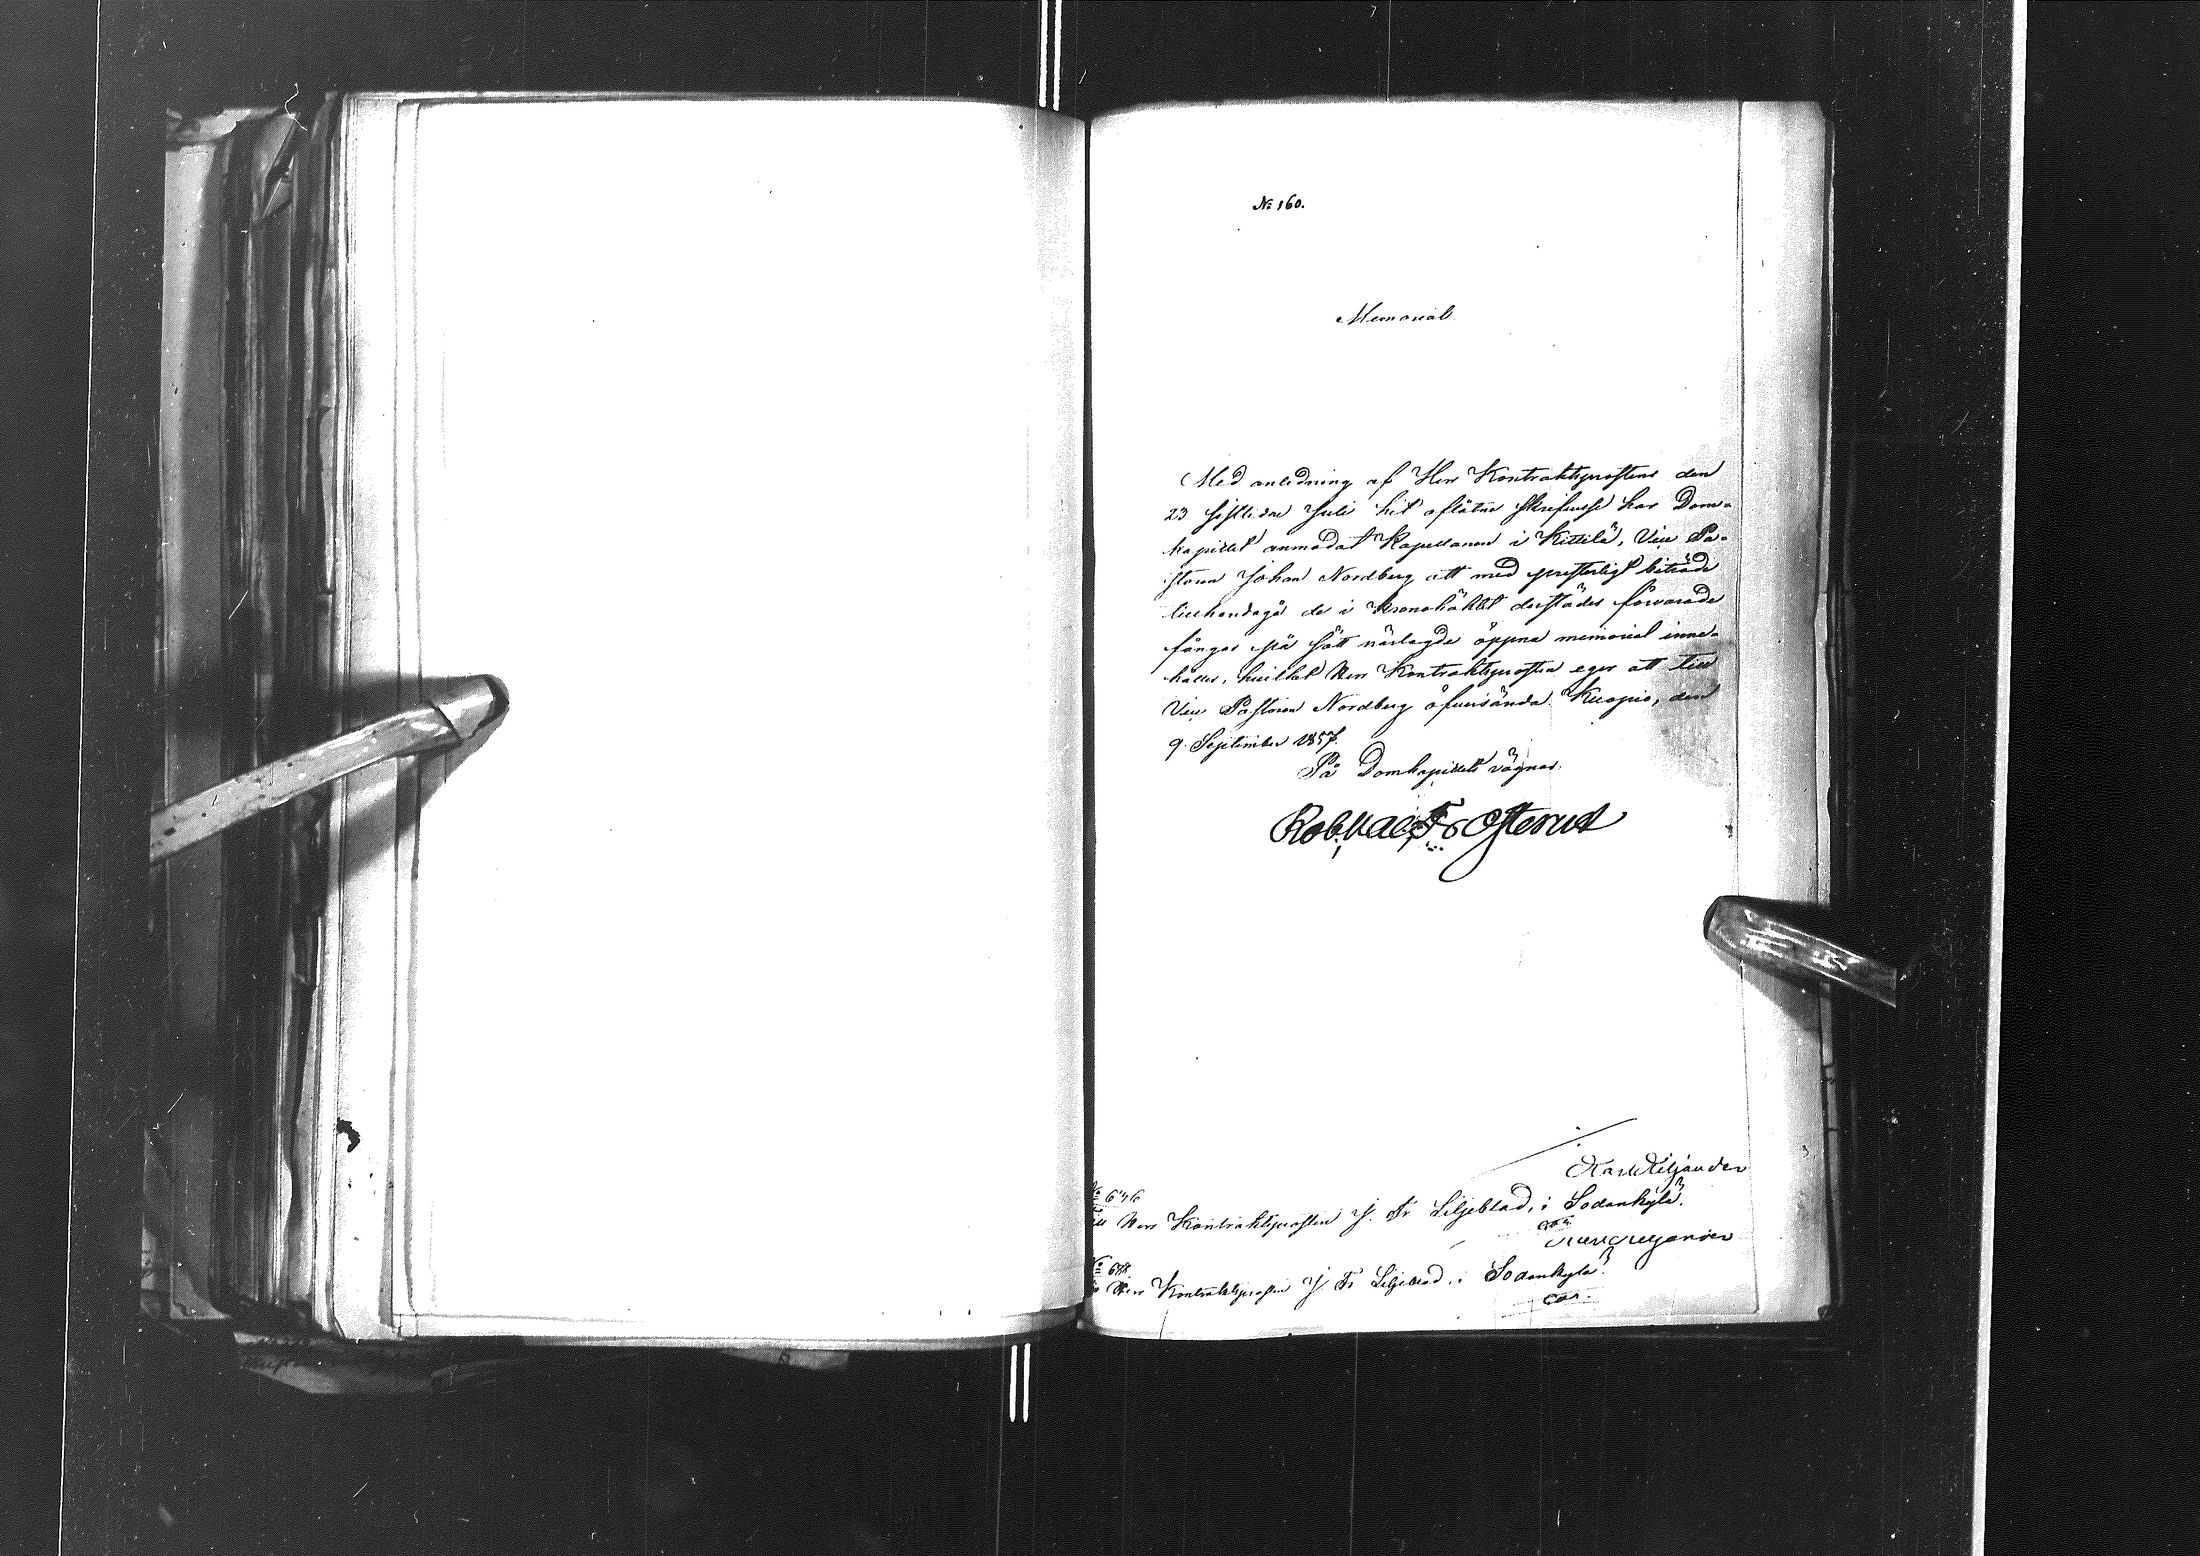 № 160.
Memorial
Med anledning af Herr Kontraktsprostens den
23 sistlidne Juli hit aflåtne skrifvelse har Dom-
kapitlet anmodat Kapellanen i Kittilä, Vice Pa-
storn Johan Nordberg att med presterligt biträde
tillhandagå de i Kronohäktet derstädes förvarade
fångar på sätt närlagde öppna memorial inne-
håller, hvilket Herr Kontraktsprosten eger att till
Vice Pastorn Nordberg öfversända. Kuopio, den
9. September 1857.
På Domkapitlets vägnar:
Rob. Val. Frosterus
Karl Kiljander
№ 676
Till Herr Kontraktsprosten J. Fr Liljeblad, i Sodankylä.
Karl Kiljander
№
Herr Kontraktsprosten J. Fr Liljeblad, i Sodankylä.